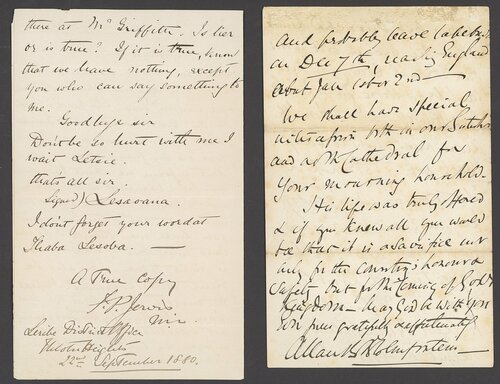 there at Mr Griffith. Is lier
or is true? If it is true, know
that we have nothing, except
you who can say something to
me.
Goodbye sir
Dont be so hurt with me I
wait Letsie.
thats all sir.
Signed) Lesaoana.
I don't forget your word at
Thaba Lesoba. —
A True Copy
Leribe District Office
Hlotse Heights
22nd September 1880.
and probably leave
on Dec 7th, England
about Jan 1st or 2nd —
We shall have special
in our
and at the Cathedral for
Your mourning household.
His life was truly offered
& if you knew all you would
that it is a sacrifice not
only for the country's honour &
Safety but for the coming of God's
Kingdom — May God be with you
gratefully & affectionately
Allan